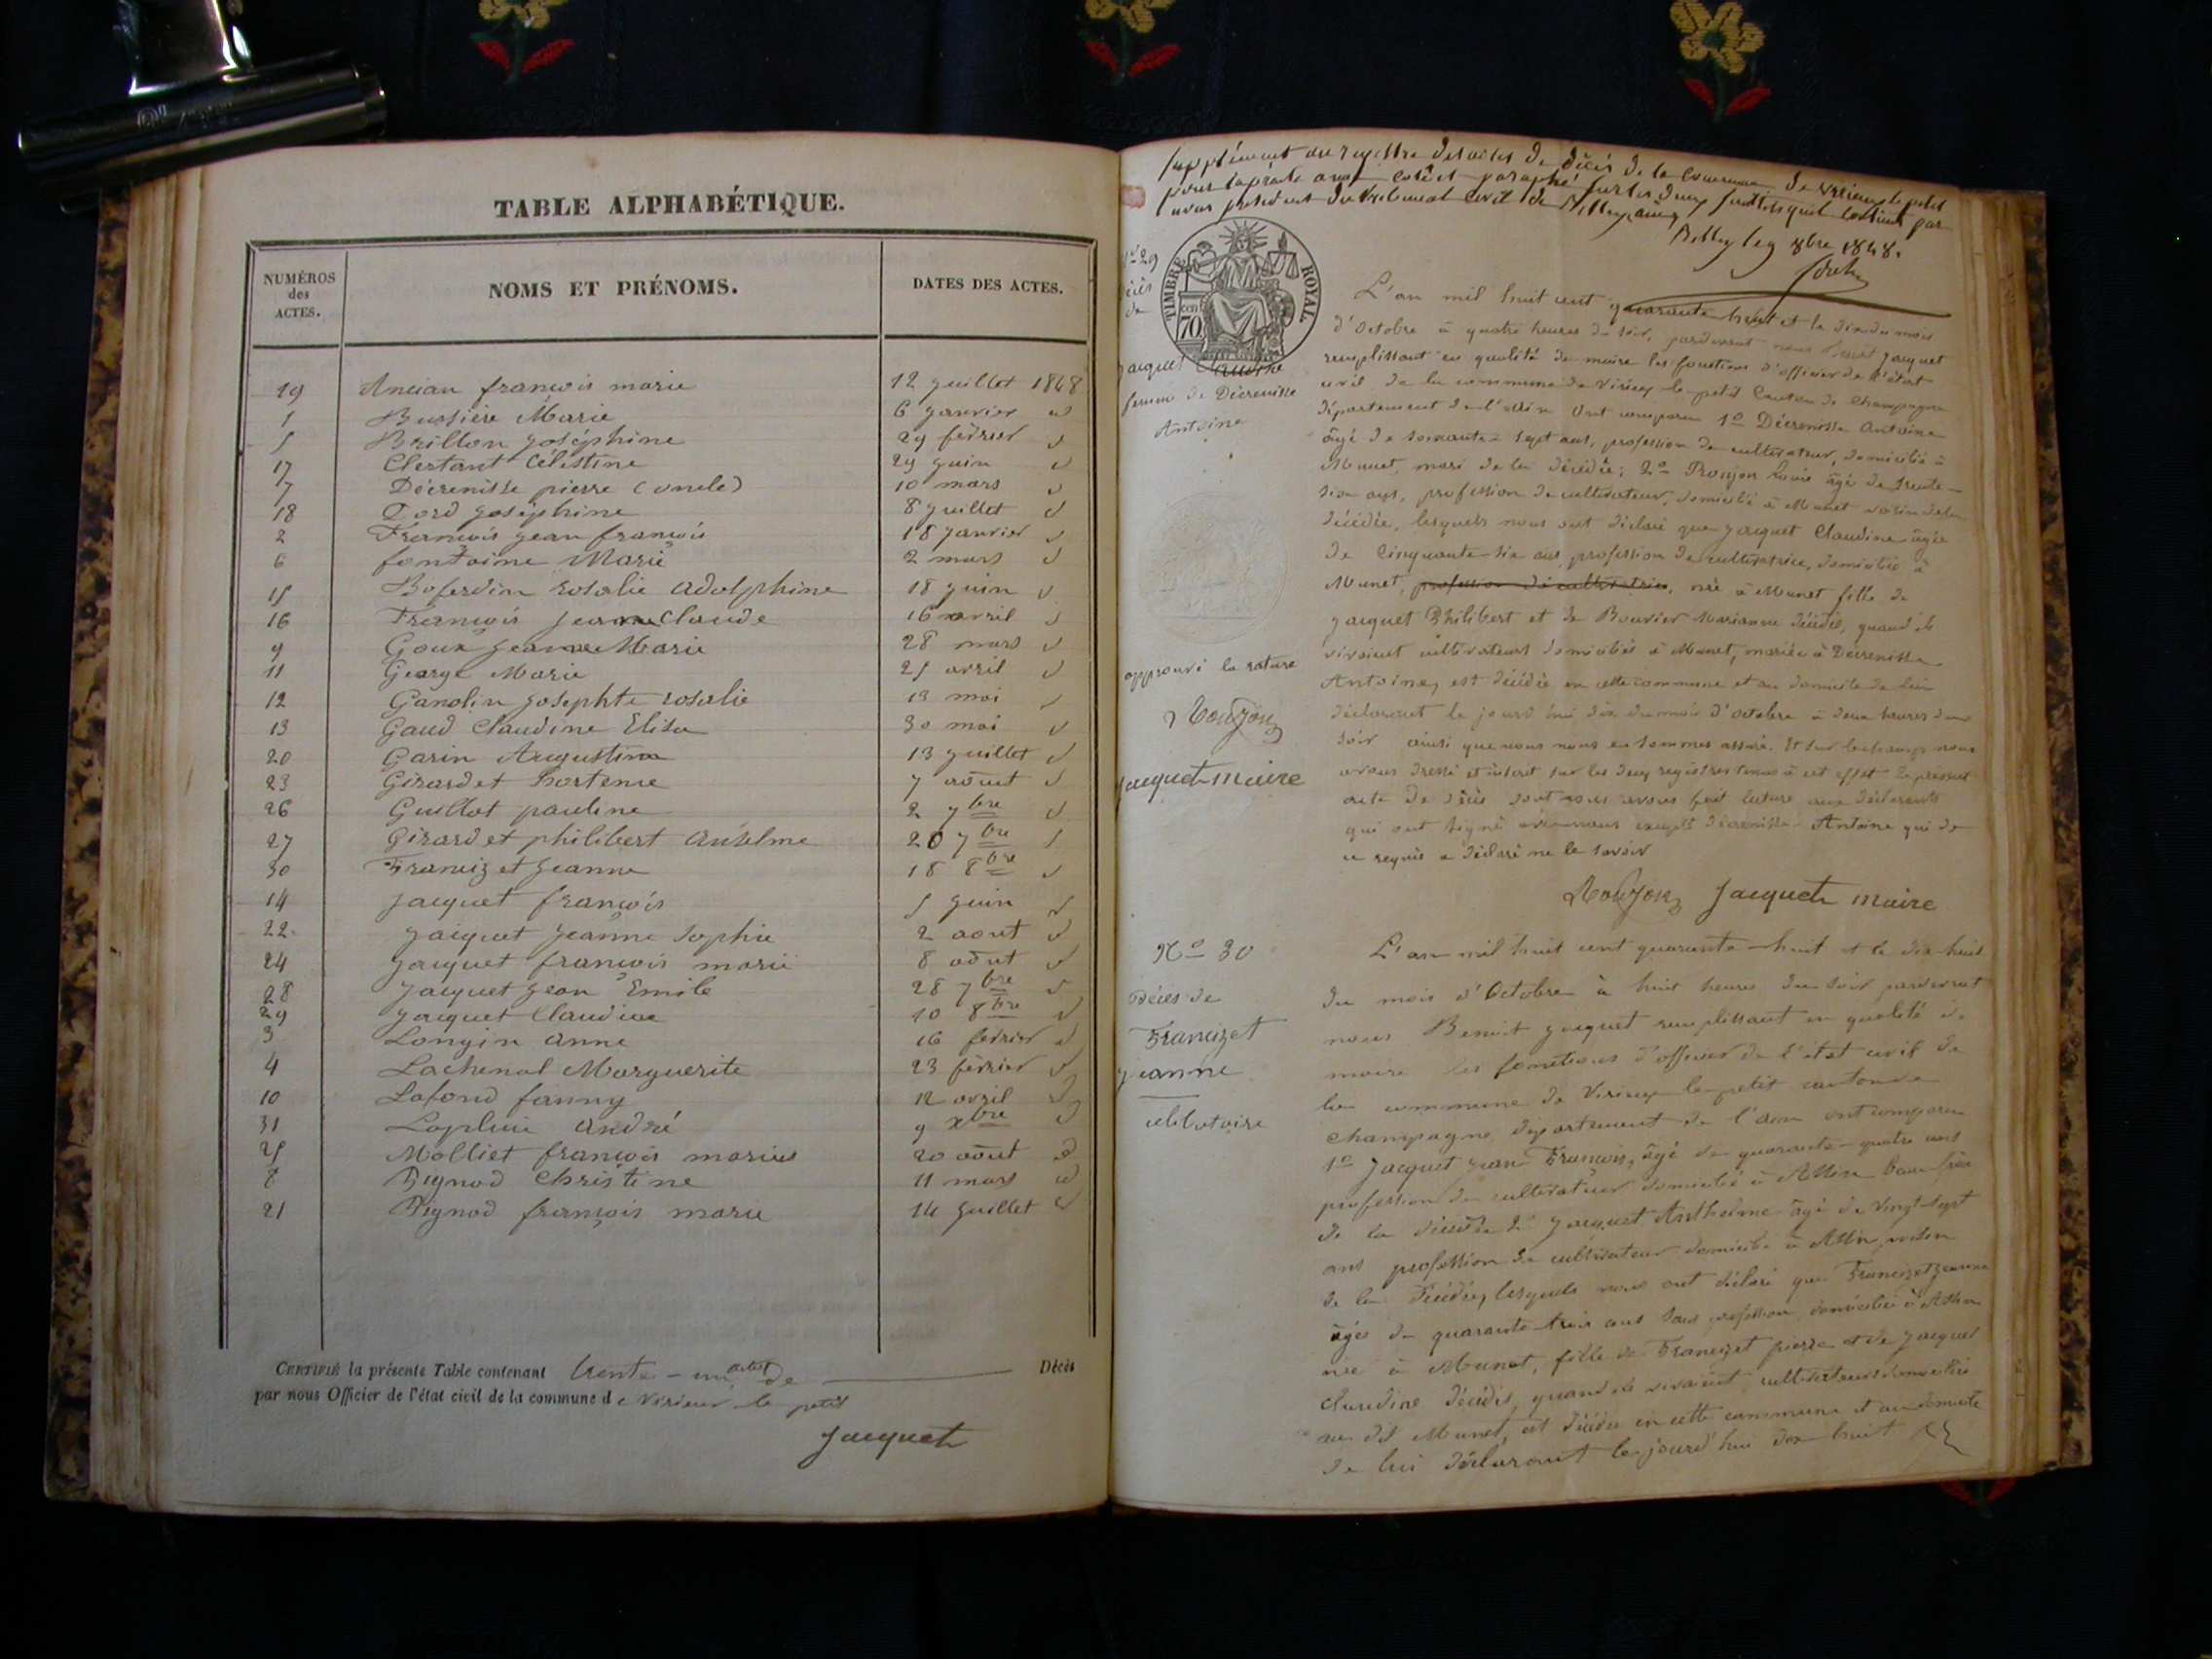 TABLE ALPHABÉTIQUE.
NUMÉROS des ACTES. NOMS ET PRÉNOMS. DATES DES ACTES.
19 Ancian françois marie 12 juillet 1848
1 Bussiere Marie 6 janvier
5 Brillon joséphine 29 février
17 Clertant Célestine 29 juin
7 Décrenisse pierre (oncle) 10 mars
18 Dord joséphine 8 juillet
2 François jean françois 18 janvier
6 fontaine Marie 2 mars
15 rosalie adolphine 18 juin
16 François jean Claude 16 avril
9 Goux jeanne Marie 28 mars
11 George Marie 25 avril
12 Ganolin josephte rosalie 13 mai
13 Gaud Claudine Elisa 30 mai
20 Garin Augustine 13 juillet
23 Girardet hortense 7 août
26 Guillot pauline 2 7bre
27 Girardet philibert anselme 20 7bre
30 Francizet jeanne 18 8bre
14 jacquet françois 5 juin
22 jacquet jeanne sophie 2 aout
24 jacquet françois marie 8 août
28 jacquet jean Emile 28 7bre
29 jacquet Claudine 10 8bre
3 Longin anne 16 février
4 Lachenal Marguerite 23 février
10 Lafond fanny 12 avril
31 Lapluie andré 9 xbre
25 Molliet françois marius 20 août
8 Pignod Christine 11 mars
21 Pignod françois marie 14 juillet
CERTIFIÉ la présente Table contenant trente-un actes de Décès
par nous Officier de l'état civil de la commune de Virieux le petit
jacquet
supplément au registre des actes de décès de la commune de Virieux le petit
pour la présente année coté et paraphé sur les deux feuillets qu'il contient par
nous président du tribunal civil de Belley
Belley le 9 8bre 1848.
TIMBRE ROYAL
cen 70
No 29
décès
de
jacquet Claudine
femme de Décrenisse
Antoine
L'an mil huit cent quarante huit et le dix du mois
d'octobre à quatre heures du soir, pardevant nous Benoit jacquet
remplissant en qualité de maire les fonctions d'officier de l'état
civil de la commune de Virieux le petit Canton de Champagne
département de l'ain Ont comparu 1o Décrenisse Antoine
âgé de soixante-sept ans, profession de cultivateur, domicilié à
Munet, mari de la décédée; 2o Roujon Louis âgé de trente-
six ans, profession de cultivateur, domicilié à Munet voisin de la
décédée, lesquels nous ont déclaré que jacquet Claudine âgée
de Cinquante six ans, profession de cultivatrice, domiciliée à
Munet, profession de cultivatrice, née à Munet fille de
jacquet Philibert et de Bouvier Marianne décédés, quand ils
vivaient cultivateurs domiciliés à Munet, mariée à Décrenisse
Antoine, est décédée en cette commune et au domicile de lui
déclarant le jourd'hui dix du mois d'octobre à deux heures du
soir ainsi que nous nous en sommes assuré. Et sur le champ nous
avons dressé et inscrit sur les deux registres tenus à cet effet le présent
acte de décès dont nous avons fait lecture aux déclarants
qui ont signé avec nous excepté Décrenisse Antoine qui de
ce requis a déclaré ne le savoir
approuvé la rature
Roujon
jacquet maire
Roujon jacquet maire
No 30
Décès de
Francizet
jeanne
célibataire
L'an mil huit cent quarante-huit et le dix-huit
du mois d'Octobre à huit heures du soir pardevant
nous Benoit jacquet remplissant en qualité de
maire les fonctions d'officier de l'état civil de
la commune de Virieux le petit canton de
Champagne, département de l'ain ont comparu
1o jacquet jean François, âgé de quarante-quatre ans
profession de cultivateur domicilié à Assin beau frère
de la décédée 2o jacquet Anthelme âgé de vingt-sept
ans profession de cultivateur domicilié à Assin voisin
de la décédée, lesquels nous ont déclaré que Francizet jeanne
âgée de quarante-trois ans sans profession, domiciliée à Assin
née à Munet, fille de Francizet pierre et de jacquet
claudine décédés, quand ils vivaient cultivateurs domiciliés
au dit Munet, est décédée en cette commune et au domicile
de lui déclarant le jourd'hui dix huit